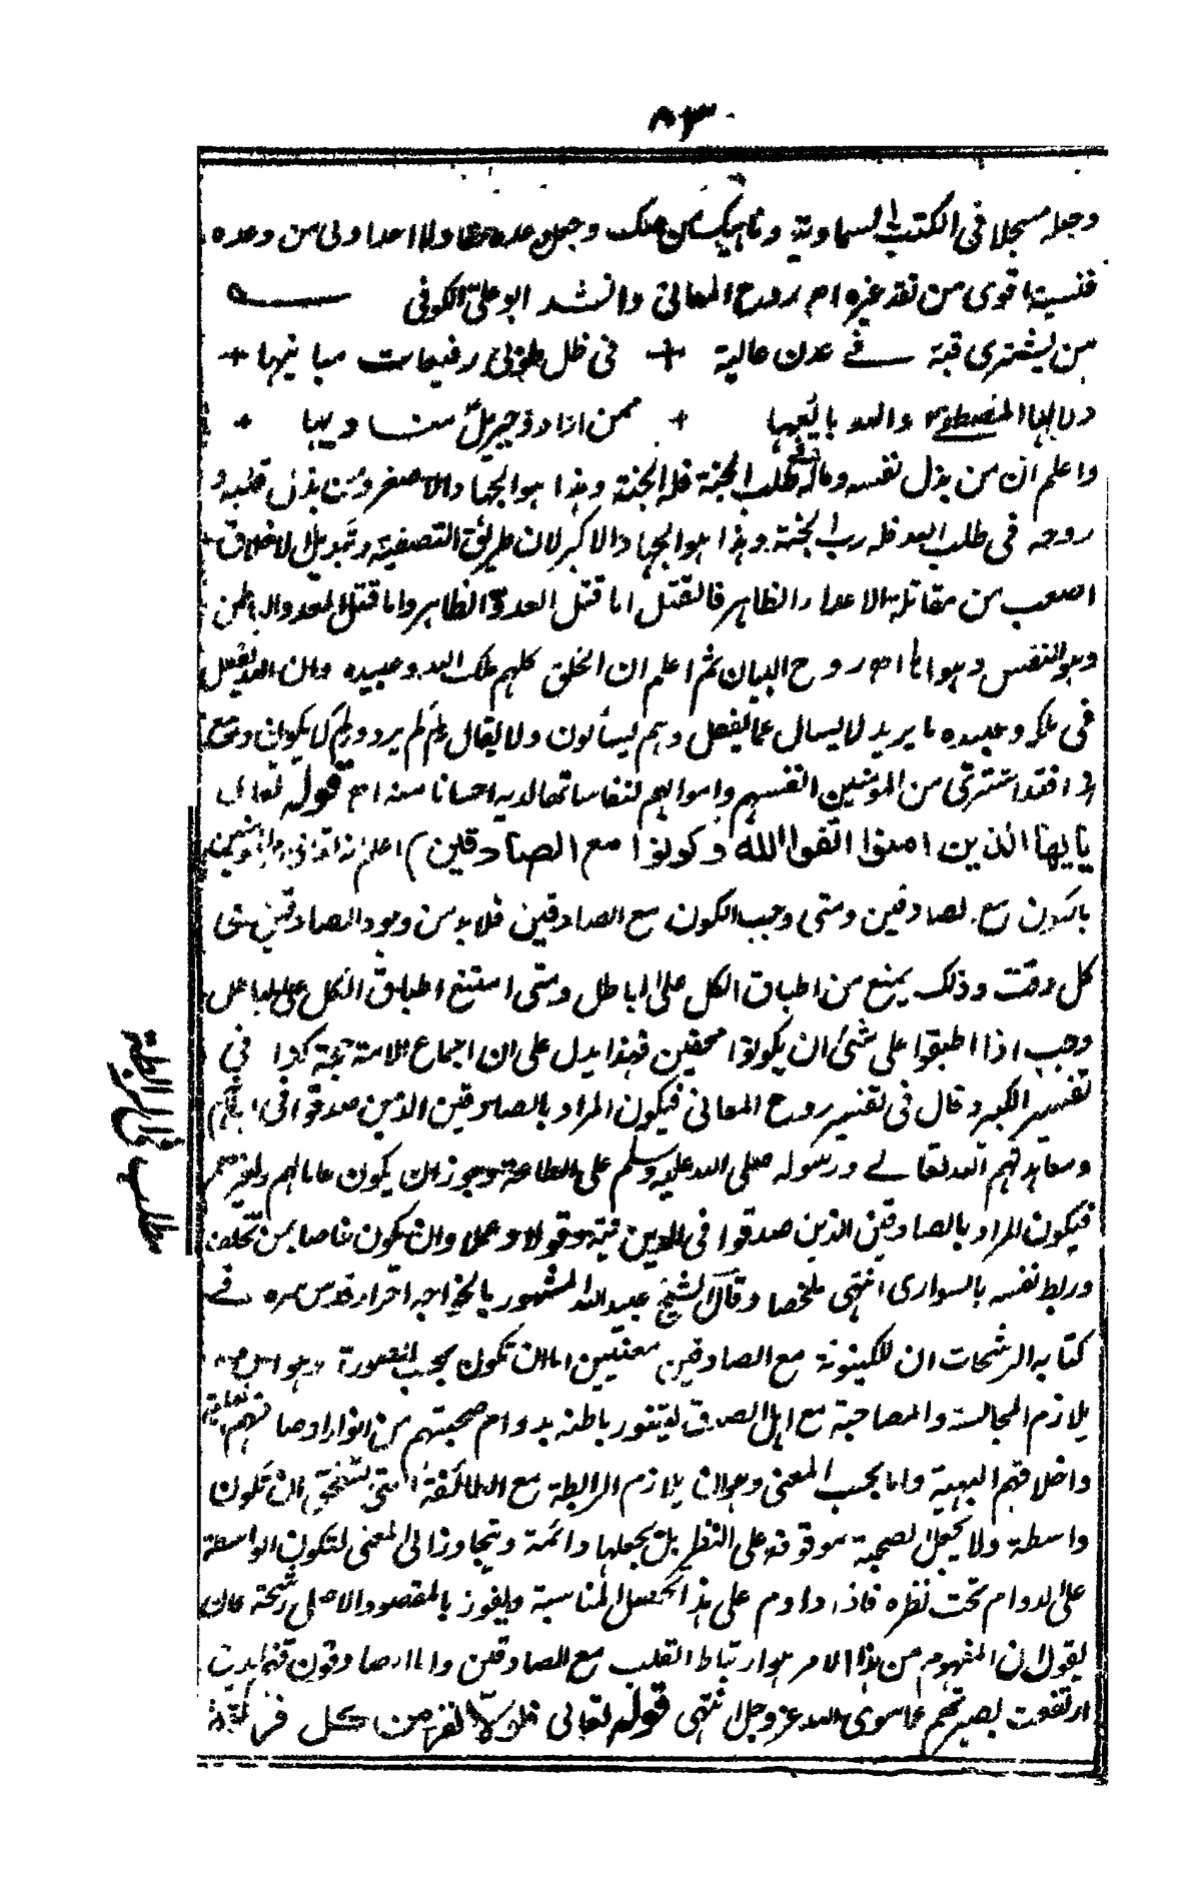 ٨٣
وجعله مسجلا فى الكتب السماوية وناهيك من صك وجعل وعده حقا ولا احد اوفى من وعده
فنسيئة اقوى من نقد غيره اه روح المعانى وانشد ابو على الكوفى
من يشترى قبة فى عدن عالية + فى ظل طوبى رفيعات مبانيها +
دلالها المصطفى والله بائعها + ممن اراد وجبريل مناديها +
واعلم ان من بذل نفسه وماله فى طلب الجنة فله الجنة وهذا هو الجهاد الاصغر ومن بذل قلبه و
روحه فى طلب الله فله رب الجنة وهذا هو الجهاد الاكبر لان طريق التصفية وتبديل الاخلاق
اصعب من مقاتلة الاعداء الظاهر فالقتل اما قتل العدو الظاهر واما قتل العدو الباطن
وهو النفس وهواها اه روح البيان ثم اعلم ان الخلق كلهم ملك الله وعبيده وان الله يفعل
فى ملكه وعبيده ما يريد لا يسال عما يفعل وهم يسألون ولا يقال لم لم يرد ولم لا يكون ومع
هذا فقد اشترى من المؤمنين انفسهم واموالهم لنفاستها لديه احسانا منه اه قوله تعالى
يايها الذين امنوا اتقوا الله وكونوا مع الصادقين) اعلم انه تعالى المؤمنين
بالكون مع الصادقين ومتى وجب الكون مع الصادقين فلا بد من وجود الصادقين فى
كل وقت وذلك يمنع من اطباق الكل على الباطل ومتى امتنع اطباق الكل على الباطل
وجب اذا اطبقوا على شئ ان يكونوا محقين فهذا يدل على ان اجماع الامة حجة كذا فى
تفسير الكبير وقال فى تفسير روح المعانى فيكون المراد بالصادقين الذين صدقوا فى ايمانهم
ومعاهدتهم الله تعالى ورسوله صلى الله عليه وسلم على الطاعة وجوز ان يكون عاما لهم ولغيرهم
فيكون المراد بالصادقين الذين صدقوا فى الدين نية وقولا وعملا وان يكون خاصا بمن تخلف
وربط نفسه بالسوارى انتهى ملخصا وقال الشيخ عبيد الله المشهور بالخواجه احرار قدس سره فى
كتابه الرشحات ان للكينونة مع الصادقين معنيين اما ان تكون بحسب الصورة وهو
يلازم المجالسة والمصاحبة مع اهل الصدق ليتنور باطنه بدوام صحبتهم من انوار اوصافهم
واخلاقهم البهية واما بحسب المعنى وهو ان يلازم الرابطة مع الطائفة التى تستحق ان تكون
واسطة ولا يجعل الصحبة موقوفة على النظر بل يجعلها دائمة ويتجاوز الى المعنى لتكون الواسطة
على الدوام تحت نظره فاذا داوم على هذا تحصل المناسبة ويفوز بالمقصود الاصلى رشحة كان
يقول ان المفهوم من هذا الامر هو ارتباط القلب مع الصادقين واما الصادقون فهم الذين
ارتفعت بصيرتهم عما سوى الله عز وجل انتهى قوله تعالى فلولا نفر من كل فرقة
مطلب فى اثبات الرابطة